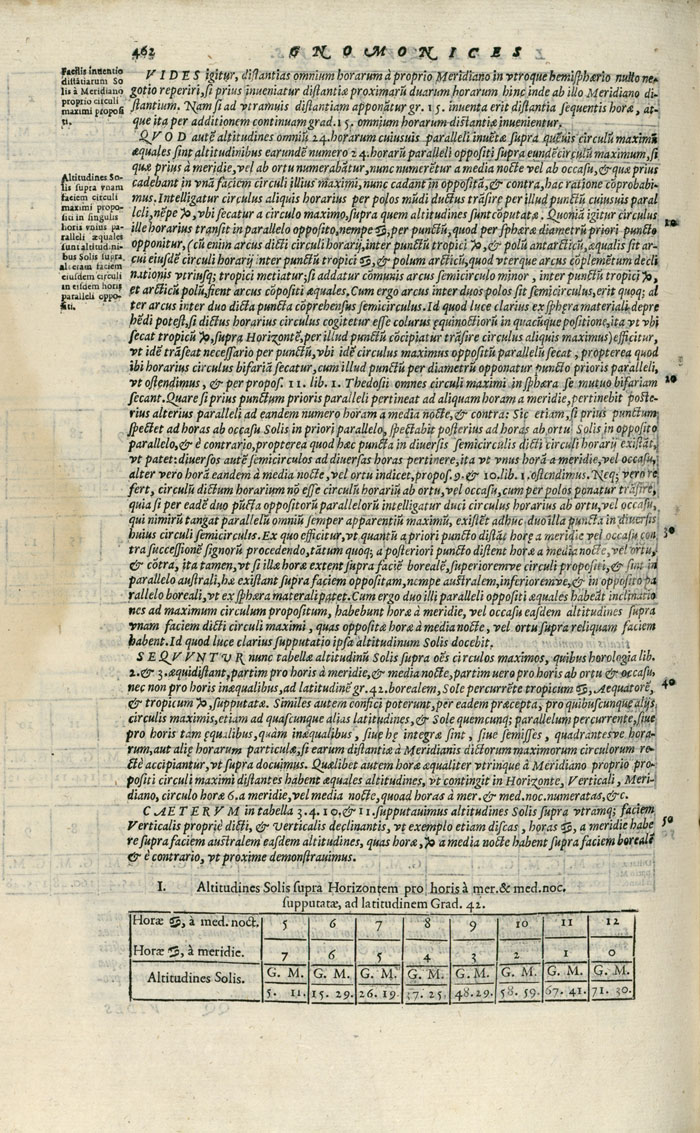 462 GNOMONICES
Facilis inuentio
distãtiarum So
lis à Meridiano
proprio circuli
maximi proposi
ti.
VIDES igitur, distantias omnium horarum à proprio Meridiano in vtroque hemisphærio nullo ne-
gotio reperiri, si prius inueniatur distantiæ proximarũ duarum horarum hinc inde ab illo Meridiano di-
stantium. Nam si ad vtramuis distantiam apponãtur gr. 15. inuenta erit distantia sequentis horæ, at-
que ita per additionem continuam grad. 15. omnium horarum distantiæ inuenientur.
QVOD autẽ altitudines omniũ 24. horarum cuiusuis paralleli inuẽtæ supra quẽuis circulũ maximũ
æquales sint altitudinibus earundẽ numero 24. horarũ paralleli oppositi supra eundẽ circulũ maximum, si
quæ prius à meridie, vel ab ortu numerabãtur, nunc numerẽtur a media nocte vel ab occasu, & quæ prius
cadebant in vnã faciem circuli illius maximi, nunc cadant in oppositã, & contra, hac ratione cõprobabi-
Altitudines So-
lis supra vnam
faciem circuli
maximi propo-
siti in singulis
horis vnius pa-
ralleli æquales
sunt altitudini-
bus Solis supra
alteram faciem
eiusdem circuli
in eisdem horis
paralleli oppo-
siti.
mus. Intelligatur circulus aliquis horarius per polos mũdi ductus trãsire per illud punctũ cuiusuis paral
leli, nẽpe ♑, vbi secatur a circulo maximo, supra quem altitudines sunt cõputatæ. Quoniã igitur circulus
10
ille horarius transit in parallelo opposito, nempe ♋, per punctũ, quod per sphæræ diametrũ priori puncto
opponitur, (cũ enim arcus dicti circuli horarij, inter punctũ tropici ♑, & polũ antarcticũ, æqualis sit ar-
cui eiusdẽ circuli horarij inter punctũ tropici ♋, & polum arcticũ, quod vterque arcus cõplemẽtum decli
nationis vtriusq; tropici metiatur; si addatur cõmunis arcus semicirculo minor, inter punctũ tropici ♑,
et arcticũ polũ, fient arcus cõpositi æquales. Cum ergo arcus inter duos polos sit semicirculus, erit quoq; al
ter arcus inter duo dicta puncta cõprehensus semicirculus. Id quod luce clarius ex sphæra materiali depre
hẽdi potest, si dictus horarius circulus cogitetur esse colurus equinoctiorũ in quacũque positione, ita vt vbi
secat tropicũ ♑, supra Horizontẽ, per illud punctũ cõcipiatur trãsire circulus aliquis maximus) efficitur,
vt idẽ trãseat necessario per punctũ, vbi idẽ circulus maximus oppositũ parallelũ secat, propterea quod
ibi horarius circulus bifariã secatur, cum illud punctum per diametrũ opponatur puncto prioris paralleli,
vt ostendimus, & per propos. 11. lib. 1. Thedosii omnes circuli maximi in sphæra se mutuo bifariam
20
secant. Quare si prius punctum prioris paralleli pertineat ad aliquam horam a meridie, pertinebit poste-
rius alterius paralleli ad eandem numero horam a media nocte, & contra: Sic etiam, si prius punctum
spectet ad horas ab occasu Solis in priori parallelo, spectabit posterius ad horas ab ortu Solis in opposito
parallelo, & è contrario, propterea quod hæc puncta in diuersis semicirculis dicti circuli horarij existãt,
vt patet: diuersos autẽ semicirculos ad diuersas horas pertinere, ita vt vnus horã a meridie, vel occasu,
alter vero horã eandem à media nocte, vel ortu indicet, propos. 9. & 10. lib. 1. ostendimus. Neq; vero re
fert, circulũ dictum horarium nõ esse circulũ horariũ ab ortu, vel occasu, cum per polos ponatur trãsire,
quia si per eadẽ duo pũcta oppositorũ parallelorũ intelligatur duci circulus horarius ab ortu, vel occasu,
qui nimirũ tangat parallelũ omniũ semper apparentiũ maximũ, existẽt adhuc duo illa puncta in diuersis
30
huius circuli semicirculis. Ex quo efficitur, vt quantũ a priori puncto distãt horę a meridie vel occasu con
tra successionẽ signorũ procedendo, tãtum quoq; a posteriori puncto distent horæ a media nocte, vel ortu,
& cõtra, ita tamen, vt si illæ horæ extent supra faciẽ borealẽ, superioremve circuli propositi, & sint in
parallelo australi, hæ existant supra faciem oppositam, nempe australem, inferioremve, & in opposito pa
rallelo boreali, vt ex sphæra materali patet. Cum ergo duo illi paralleli oppositi æquales habeãt inclinatio
nes ad maximum circulum propositum, habebunt horæ à meridie, vel occasu easdem altitudines supra
vnam faciem dicti circuli maximi, quas oppositæ horæ à media nocte, vel ortu supra reliquam faciem
habent. Id quod luce clarius supputatio ipsa altitudinum Solis docebit.
SEQVVNTVR nunc tabellæ altitudinũ Solis supra oẽs circulos maximos, quibus horologia lib.
2. & 3. æquidistant, partim pro horis à meridie, & media nocte, partim uero pro horis ab ortu & occasu,
nec non pro horis inæqualibus, ad latitudinẽ gr. 42. borealem, Sole percurrẽte tropicum ♋, Aequatorẽ,
40
& tropicum ♑, supputatæ. Similes autem confici poterunt, per eadem præcepta, pro quibuscunque alijs
circulis maximis, etiam ad quascunque alias latitudines, & Sole quemcunq; parallelum percurrente, siue
pro horis tam ęqualibus, quàm inæqualibus, siue hę integræ sint, siue semisses, quadrantesve hora-
rum, aut alię horarum particulæ, si earum distantiæ à Meridianis dictorum maximorum circulorum re-
ctè accipiantur, vt supra docuimus. Quælibet autem horæ æqualiter vtrinque à Meridiano proprio pro-
positi circuli maximi distantes habent æquales altitudines, vt contingit in Horizonte, Verticali, Meri-
diano, circulo horæ 6. a meridie, vel media nocte, quoad horas à mer. & med. noc. numeratas, &c.
CAETERVM in tabella 3. 4. 10. & 11. supputauimus altitudines Solis supra vtramq; faciem
Verticalis propriè dicti, & Verticalis declinantis, vt exemplo etiam discas, horas ♋, a meridie habe
50
re supra faciem australem easdem altitudines, quas horæ, ♑ a media nocte habent supra faciem borealẽ
& è contrario, vt proxime demonstrauimus.
I. Altitudines Solis supra Horizontem pro horis à mer. & med. noc.
supputatæ, ad latitudinem Grad. 42.
Horæ ♋, à med. noct. 5 6 7 8 9 10 11 12
Horæ ♋, à meridie. 7 6 5 4 3 2 1 0
Altitudines Solis. G. M. G. M. G. M. G. M. G. M. G. M. G. M. G. M.
5. 11. 15. 29. 26. 19. 37. 25. 48. 29. 58. 59. 67. 41. 71. 30.